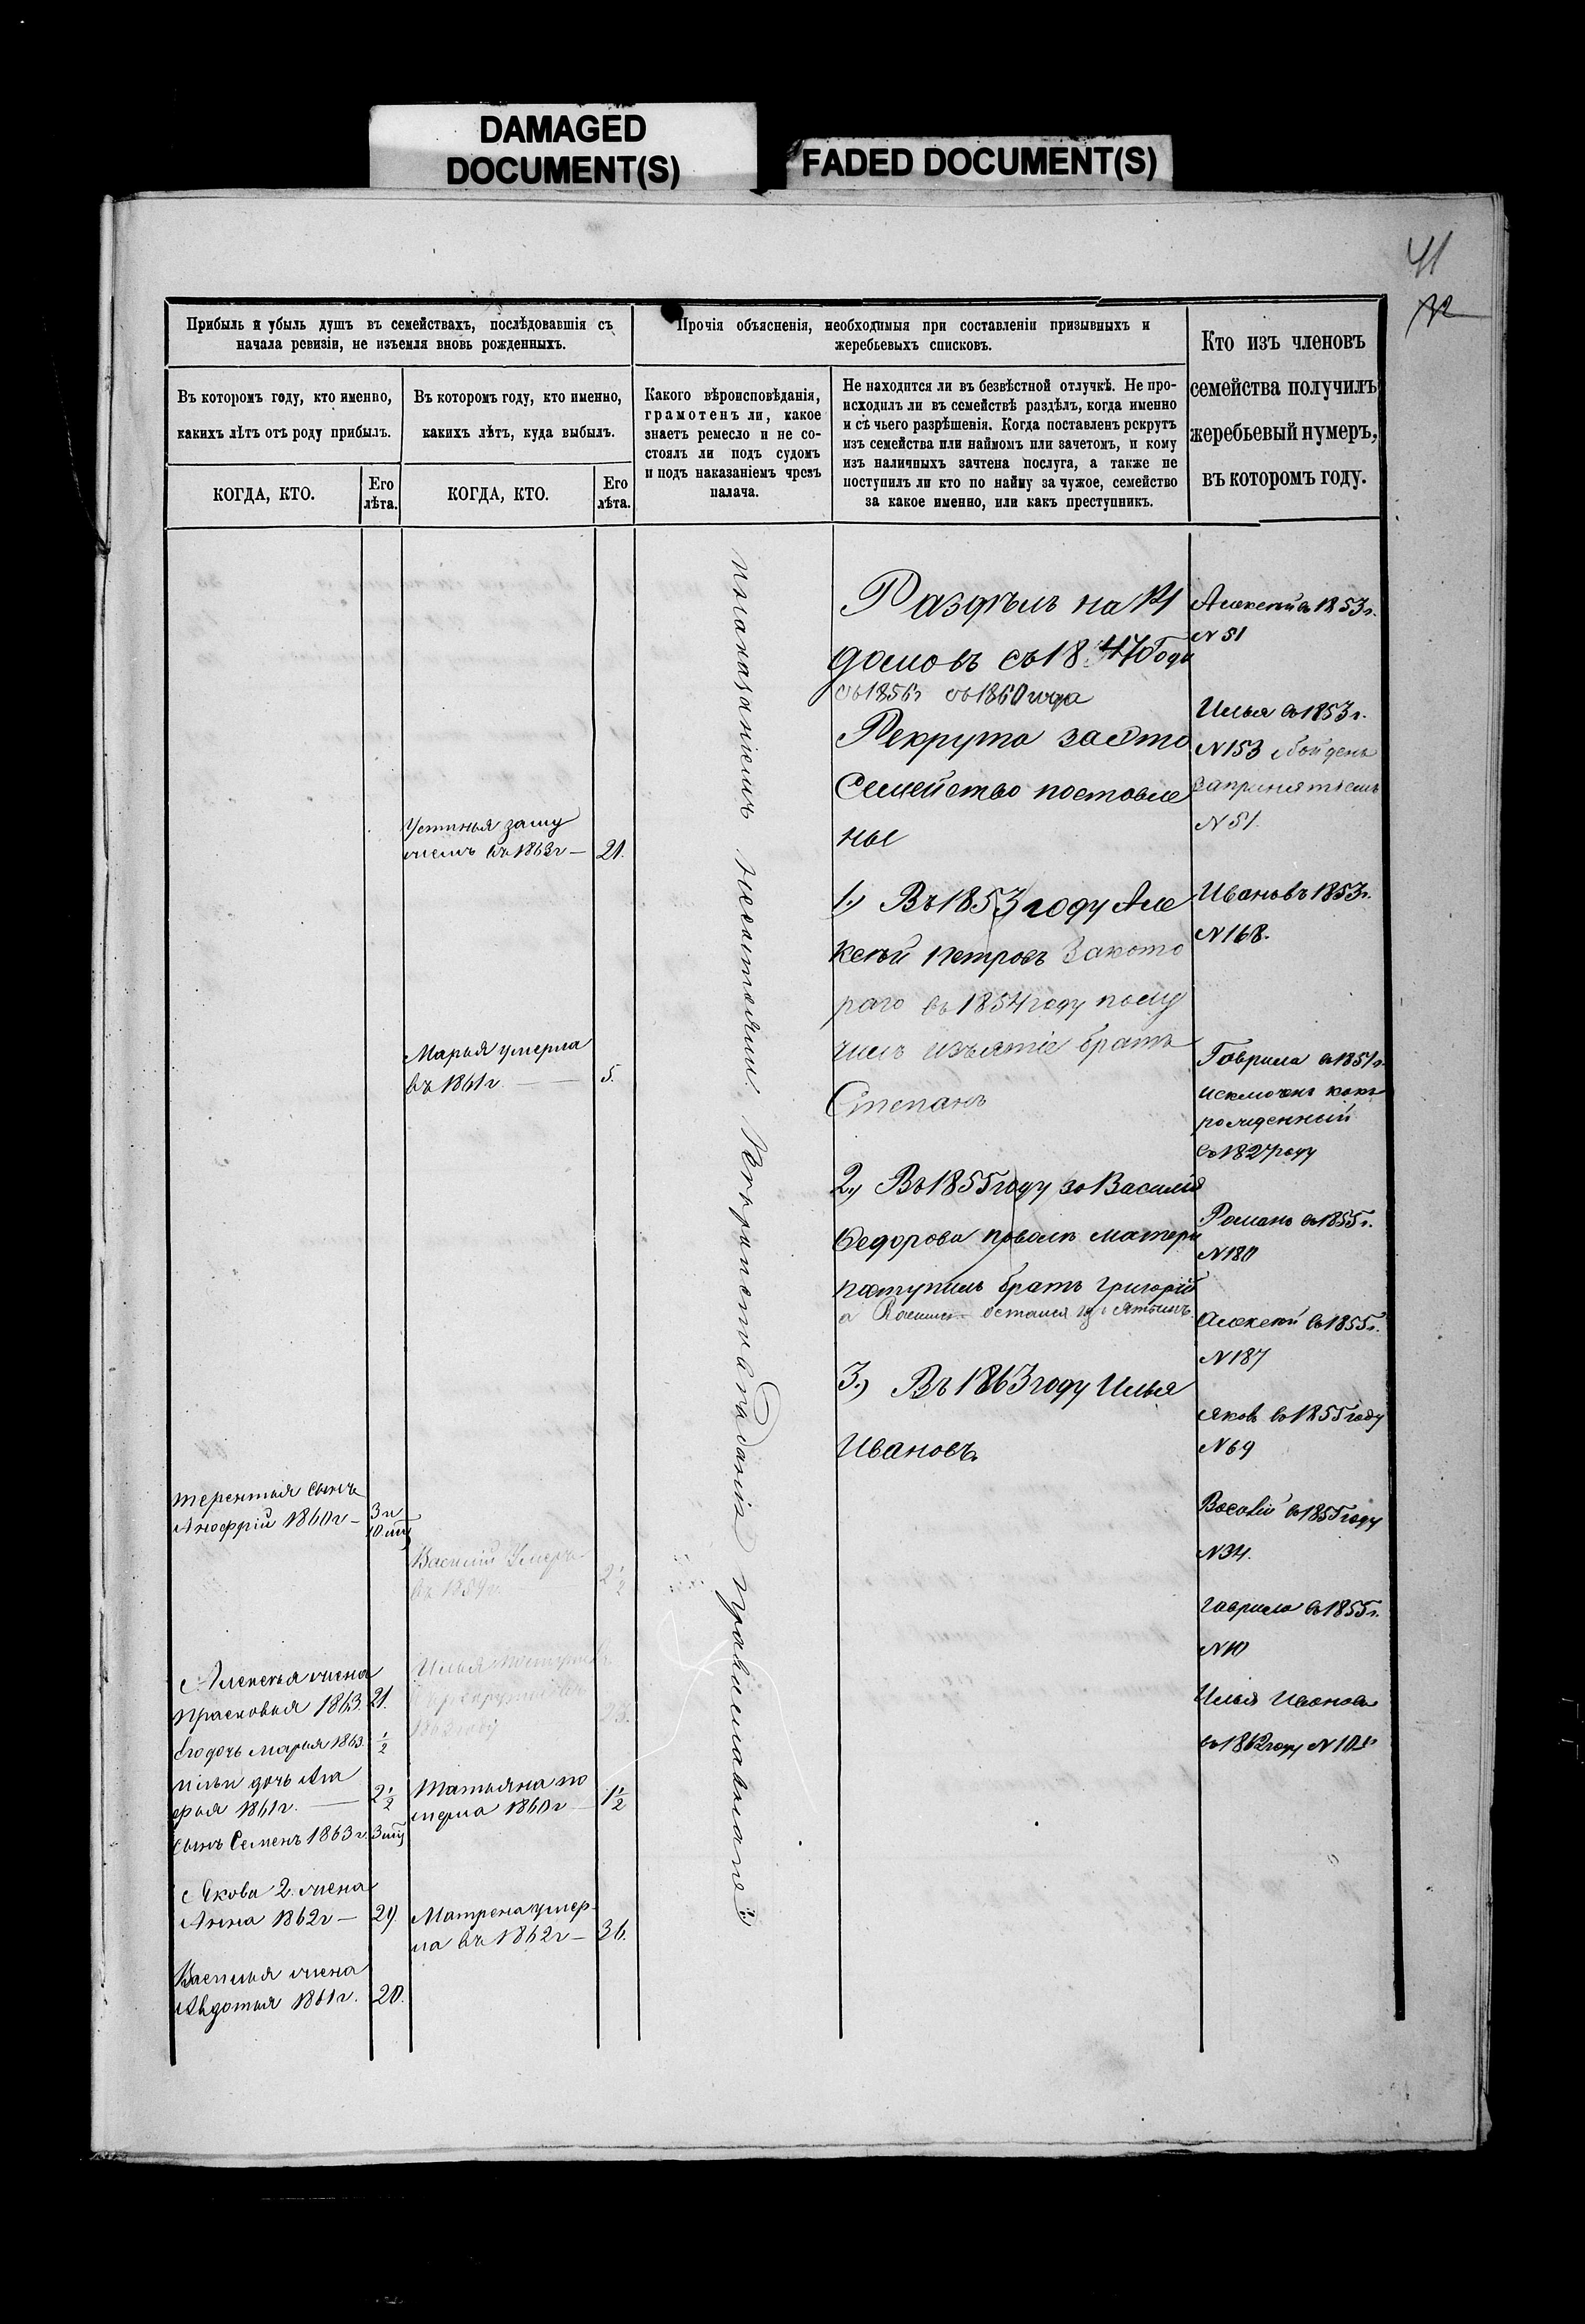 DAMAGED
DOCUMENT(S)
FADED DOCUMENT(S)
41
Прибыль и убыль душъ въ семействахъ, послѣдовавшія съ
начала ревизіи, не изъемля вновь рожденныхъ.
Въ которомъ году, кто именно,
какихъ лѣтъ отъ роду прибылъ.
КОГДА, КТО.
Его
лѣта.
Въ которомъ году, кто именно,
какихъ лѣтъ, куда выбылъ.
КОГДА, КТО.
Его
лѣта.
Прочія объясненія, необходимыя при составленіи призывныхъ и
жеребьевыхъ списковъ.
Какого вѣроисповѣданія,
грамотенъ ли, какое
знаетъ ремесло и не со-
стоялъ ли подъ судомъ
и подъ наказаніемъ чрезъ
палача.
Не находится ли въ безвѣстной отлучкѣ. Не про-
исходилъ ли въ семействѣ раздѣлъ, когда именно
и съ чьего разрѣшенія. Когда поставленъ рекрутъ
изъ семейства или наймомъ или зачетомъ, и кому
изъ наличныхъ зачтена послуга, а также не
поступилъ ли кто по найму за чужое, семейство
за какое именно, или какъ преступникъ.
Кто изъ членовъ
семейства получилъ
жеребьевый нумеръ,
въ которомъ году.
Устинья заму
жемъ въ 1863г — 21.
Марья умерла
въ 1861г. — 5.
терентья сынъ
Анофрій 1860г — 3 г
10 мц
Василій Умеръ
въ 1859г. 2 1/2
Алексѣя жена
Прасковья 1863. 21.
Его дочь Марья 1863. 1/2
Ильи дочь Ага
фья 1861г. — 2 1/2
сынъ Семенъ 1863г. 3 мц
Илья поступилъ
1862 году 23.
Татьяна по
мерла 1860г — 1 1/2
Якова 2. жена
Анна 1862г — 29.
Матрена умер
ла въ 1862г — 36.
Василья жена
Авдотья 1861г. 20.
Вѣроисповѣданія православнаго
наказаніемъ несостояли.
Раздѣлъ на
домовъ съ 1847 Года
съ 1856г съ 1860 года
Рекрута за Это
Семейство поставле
ны
1.) Въ 1853 году Але
ксѣй Петровъ За кото
раго въ 1854 году полу
чилъ изъятіе братъ
Степанъ
2.) Въ 1855 году за Василія
Федорова по волѣ матери
поступилъ братъ Григорій
остался
3.) Въ 1863 году Илья
Ивановъ.
Алексѣй въ 1853г.
N 51
Илья въ 1853г.
N 153 обойденъ
за принятіемъ
N 51.
Иванъ въ 1853г.
N 168.
Гаврила въ 1851г.
исключенъ какъ
рожденный
въ 1827 году
Романъ въ 1855г.
N 180
Алексѣй въ 1855г.
N 187
Яковъ въ 1855 году
N 69
Василій въ 1855 году
N 34.
Гаврила въ 1855г.
N 10
Илья Ивановъ
въ 1862 году N